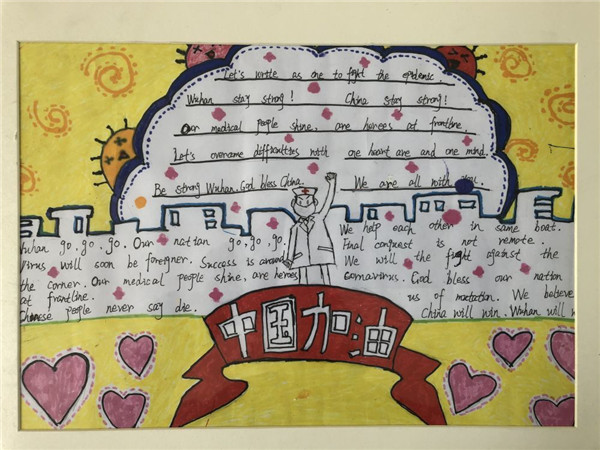 Let's write as one to fight the epidemic
Wuhan stay strong! China stay strong!
Our medical people shine, are heroes at frontline.
Let's overcome difficulties with one heart are and one mind.
Be strong Wuhan. God bless China. We are all with
Wuhan go, go, go. Our nation go, go, go.
Virus will soon be foregner. Success is around
the corner. Our medical people shine, are heroes
at frontline.
Chinese people never say die.
We help each other in same boat.
Final conquest is not remote.
We will the fight against the
coronavirus. God bless our nation
us of We believe
China will win. Wuhan will
中国加油